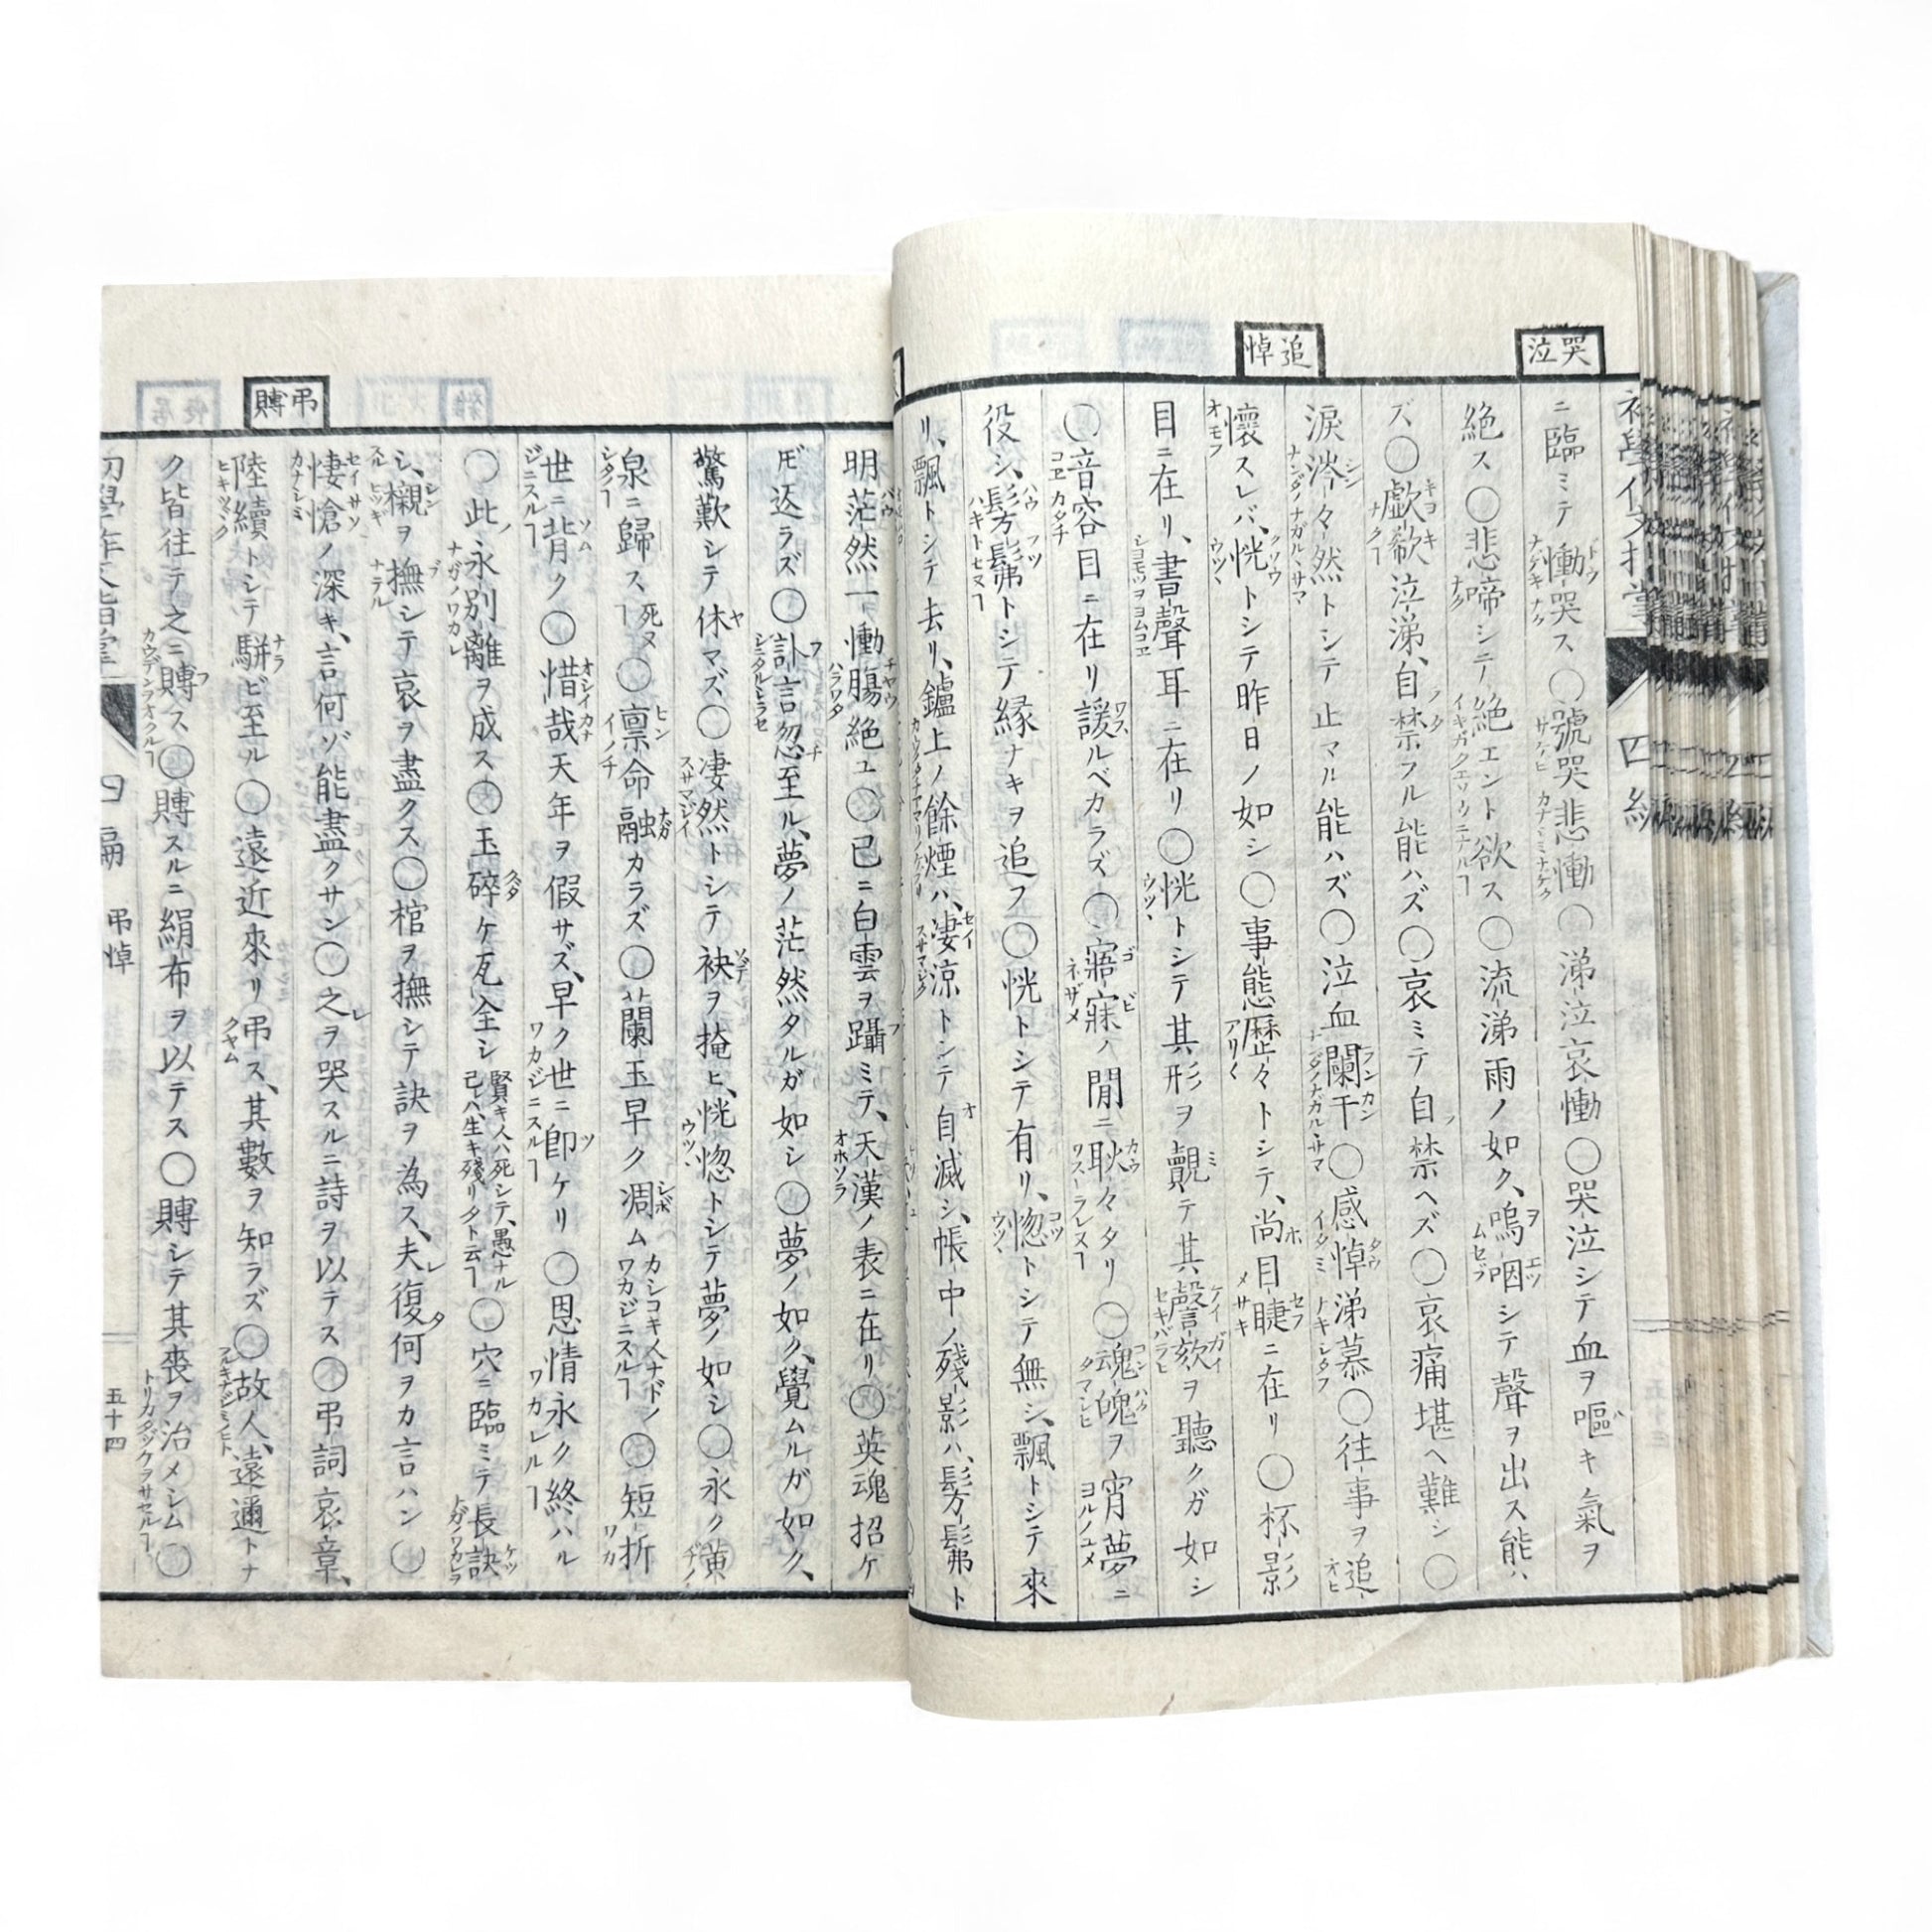 哭泣
追悼
四編
ニ臨ミテ慟哭ス〇號哭悲慟〇涕泣哀慟〇哭泣シテ血ヲ嘔キ氣ヲ
絶ス〇悲啼シテ絶エント欲ス〇流涕雨ノ如ク、嗚咽シテ聲ヲ出ス能ハ
ズ〇歔欷泣涕、自禁フル能ハズ〇哀ミテ自禁ヘズ〇哀痛堪ヘ難シ〇
涙涔々然トシテ止マル能ハズ〇泣血闌干〇感悼涕慕〇往事ヲ追
懷スレバ、恍トシテ昨日ノ如シ〇事態歷々トシテ、尚目睫ニ在リ〇杯影
目ニ在リ、書聲耳ニ在リ〇恍トシテ其形ヲ覿テ其謦欬ヲ聽クガ如シ
〇音容目ニ在リ諼ルベカラズ〇寤寐ノ間ニ耿々タリ〇魂魄ヲ宵夢ニ
役シ、髣髴トシテ縁ナキヲ追フ〇恍トシテ有リ、惚トシテ無シ、飄トシテ來
リ、飄トシテ去リ、鑪上ノ餘煙ハ、凄涼トシテ自滅シ、帳中ノ殘影ハ、髣髴ト
弔賻
明茫然一慟腸絶ユ〇已ニ白雲ヲ躡ミテ、天漢ノ表ニ在リ〇英魂招ケ
𪜈返ラズ〇訃言忽至ル、夢ノ茫然タルガ如シ〇夢ノ如ク、覺ムルガ如ク、
驚歎シテ休マズ〇凄然トシテ袂ヲ掩ヒ、恍惚トシテ夢ノ如シ〇永ク黄
泉ニ歸スヿ死ヌ〇禀命融カラズ〇蘭玉早ク凋ムカシコキ人ナドノワカジニスルヿ〇短折
世ニ背ク〇惜哉天年ヲ假サズ、早ク世ニ卽ケリ〇恩情永ク終ハル
〇此永別離ヲ成ス〇玉碎ケ瓦全シ賢キ人ハ死シテ、愚ナル己レハ、生キ殘リタト云ヿ〇穴ニ臨ミテ長訣
シ、櫬ヲ撫シテ哀ヲ盡クス〇棺ヲ撫シテ訣ヲ為ス、夫復何ヲカ言ハン〇
悽愴ノ深キ、言何ゾ能盡クサン〇之ヲ哭スルニ詩ヲ以テス〇弔詞哀章、
陸續トシテ駢ビ至ル〇遠近來リ弔ス、其數ヲ知ラズ〇故人、遠邇トナ
ク皆往テ之ニ賻ス〇賻スルニ絹布ヲ以テス〇賻シテ其喪ヲ治メシム〇
弔悼
五十四